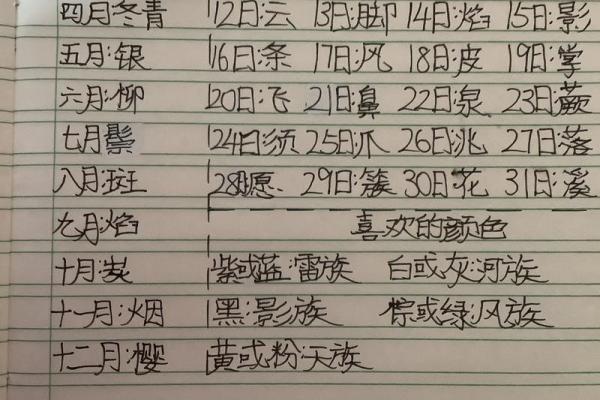 四月:冬青 12日:云 13日:脚 14日:焰 15日:影
五月:银 16日:条 17日:风 18日:皮 19日:掌
六月:柳 20日:飞 21日:鼻 22日:泉 23日:蕨
七月:鬃 24日:须 25日:爪 26日:兆 27日:落
八月:斑 28日:愿 29日:簇 30日:花 31日:溪
九月:焰 喜欢的颜色
十月:炭 紫或蓝:雷族 白或灰:河族
十一月:烟 黑:影族 棕或绿:风族
十二月:樱 黄或粉:天族